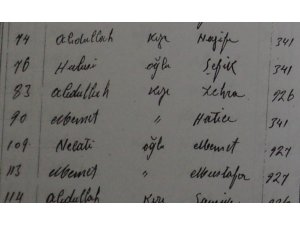 74 Abdullah kızı Nazife 341
76 Hulusi oğlu Şefik 341
83 Abdullah kızı Zehra 926
90 Mehmet " Hatice 341
109 Necati oğlu Mehmet 927
113 Mehmet " Mustafa 927
114 Abdullah kızı